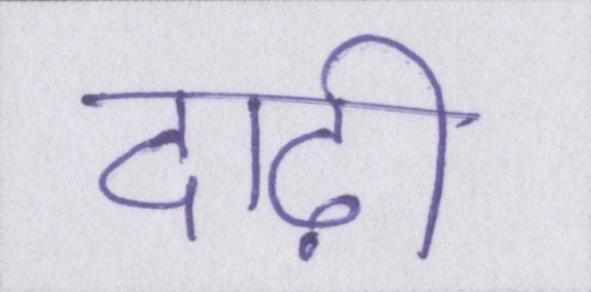 दाढ़ी